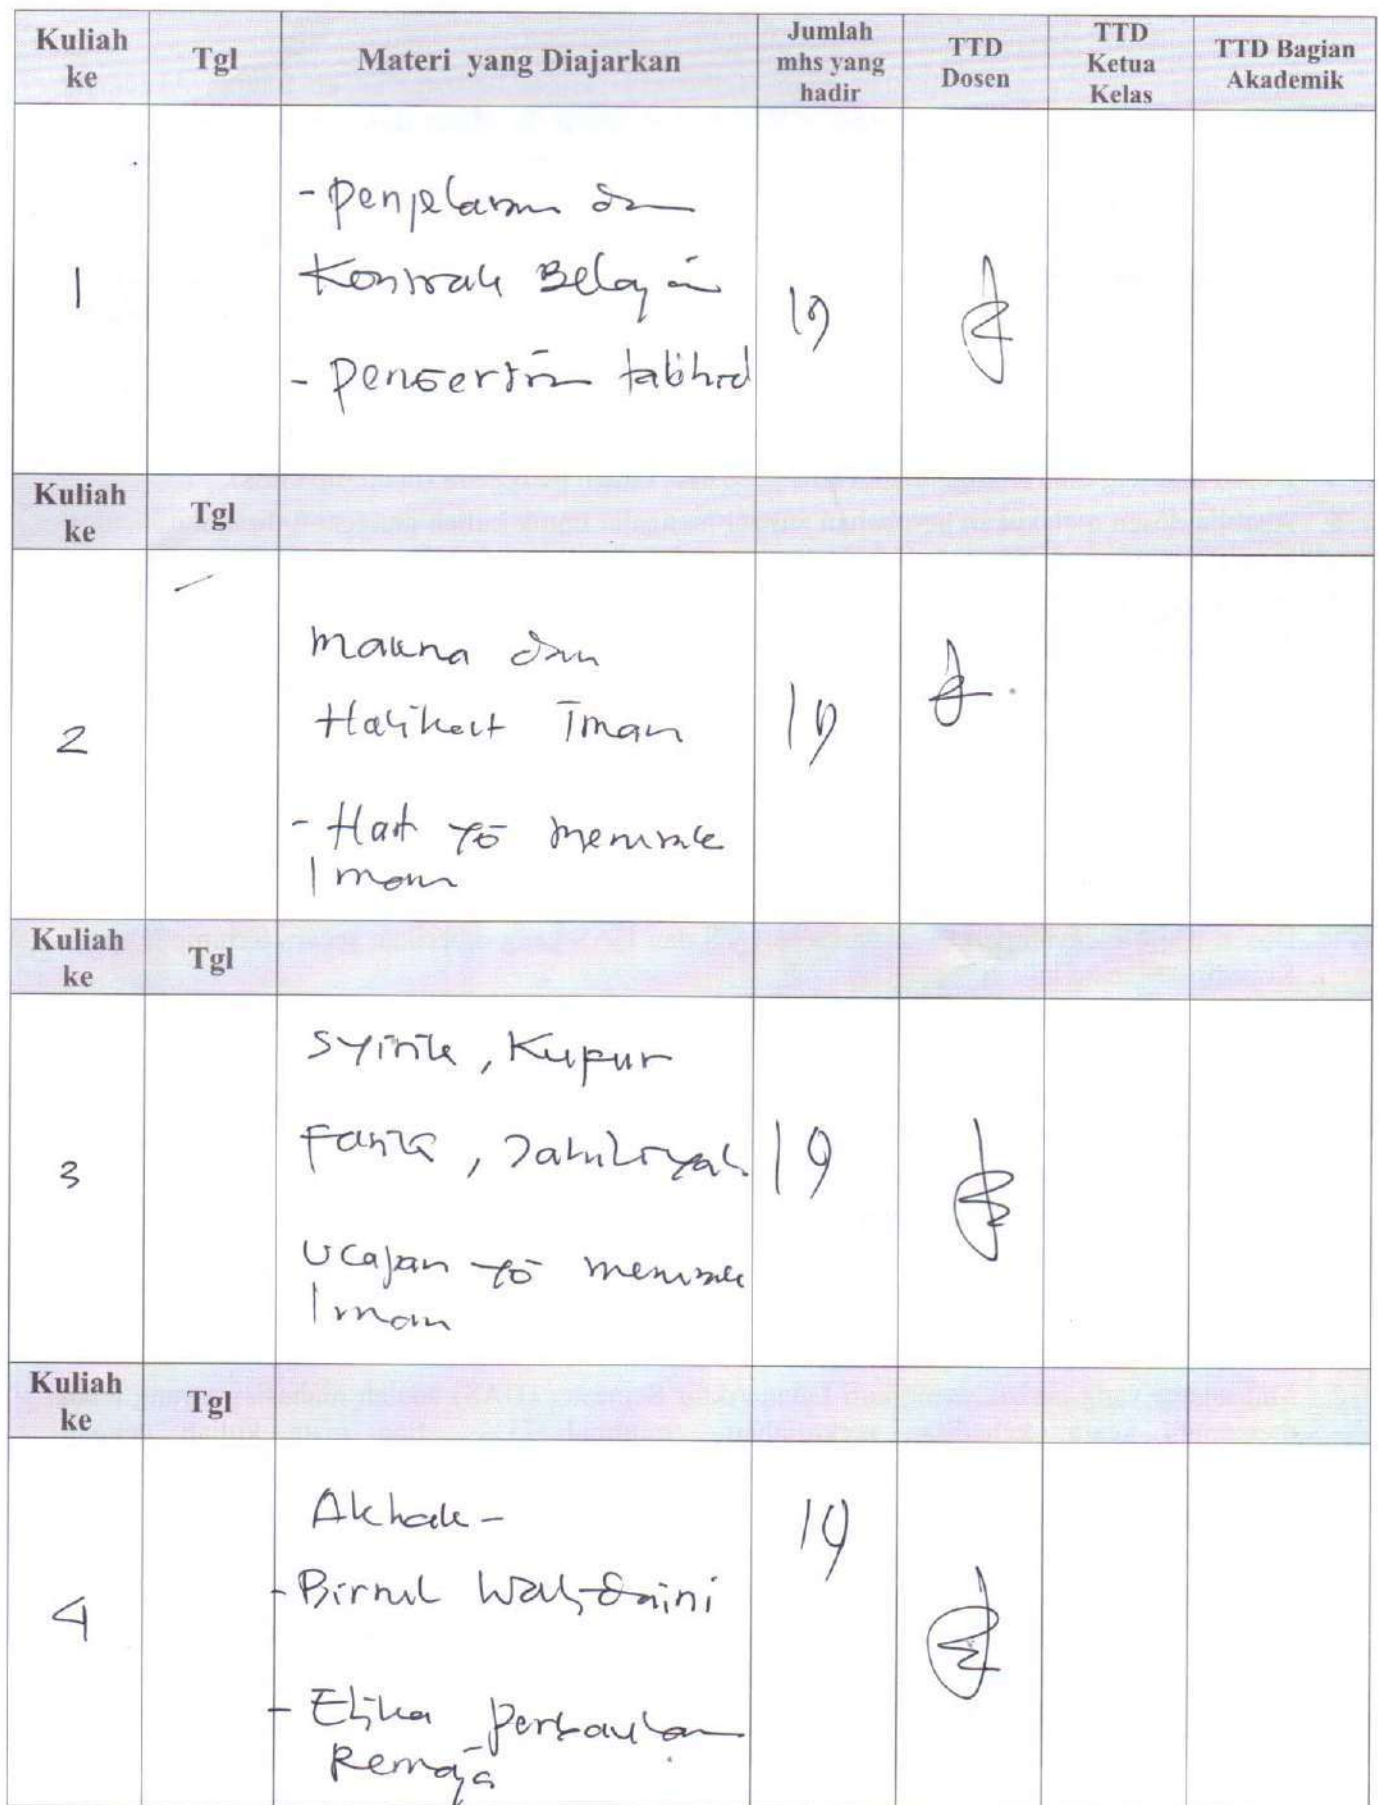 Kuliah ke Tgl Materi yang Diajarkan Jumlah mhs yang hadir TTD Dosen TTD Ketua Kelas TTD Bagian Akademik
- Penjelasan dan
Kontrak Belajar
1 19
- Pengertian tauhid
Kuliah ke Tgl
Makna dan
2 Hakikat Iman 19
- Hal yg merusak
Iman
Kuliah ke Tgl
Syirik, Kupur
3 Fasik, Jahiliyah 19
Ucapan yg merusak
Iman
Kuliah ke Tgl
Akhak - 19
4 - Birrul Walidaini
- Etika Pergaulan
Remaja